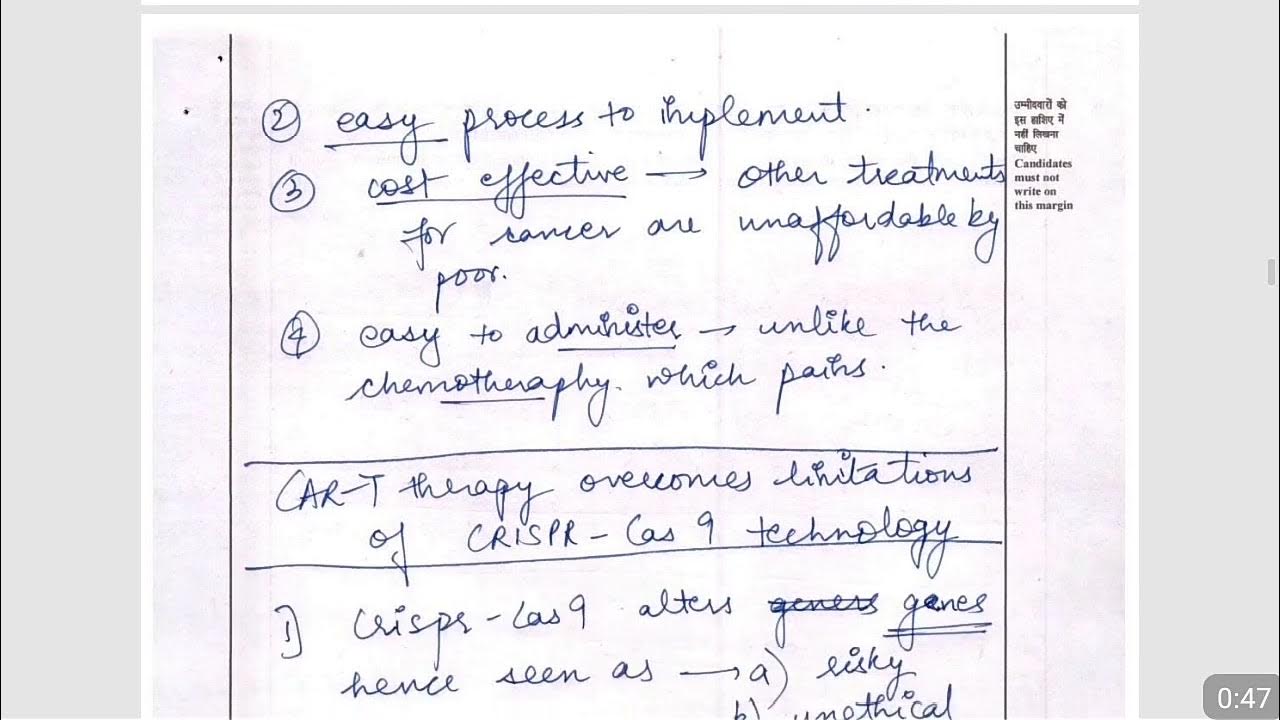 ② easy process to implement.
③ cost effective → other treatments
for cancer are unaffordable by
poor.
④ easy to administer → unlike the
chemotheraphy. which pains.
CAR-T therapy overcomes limitations
of CRISPR-Cas 9 technology
1] Crispr-Cas 9 alters geners genes
hence seen as → a) risky
b) unethical
उम्मीदवारों को
इस हाशिए में
नहीं लिखना
चाहिए
Candidates
must not
write on
this margin
0:47